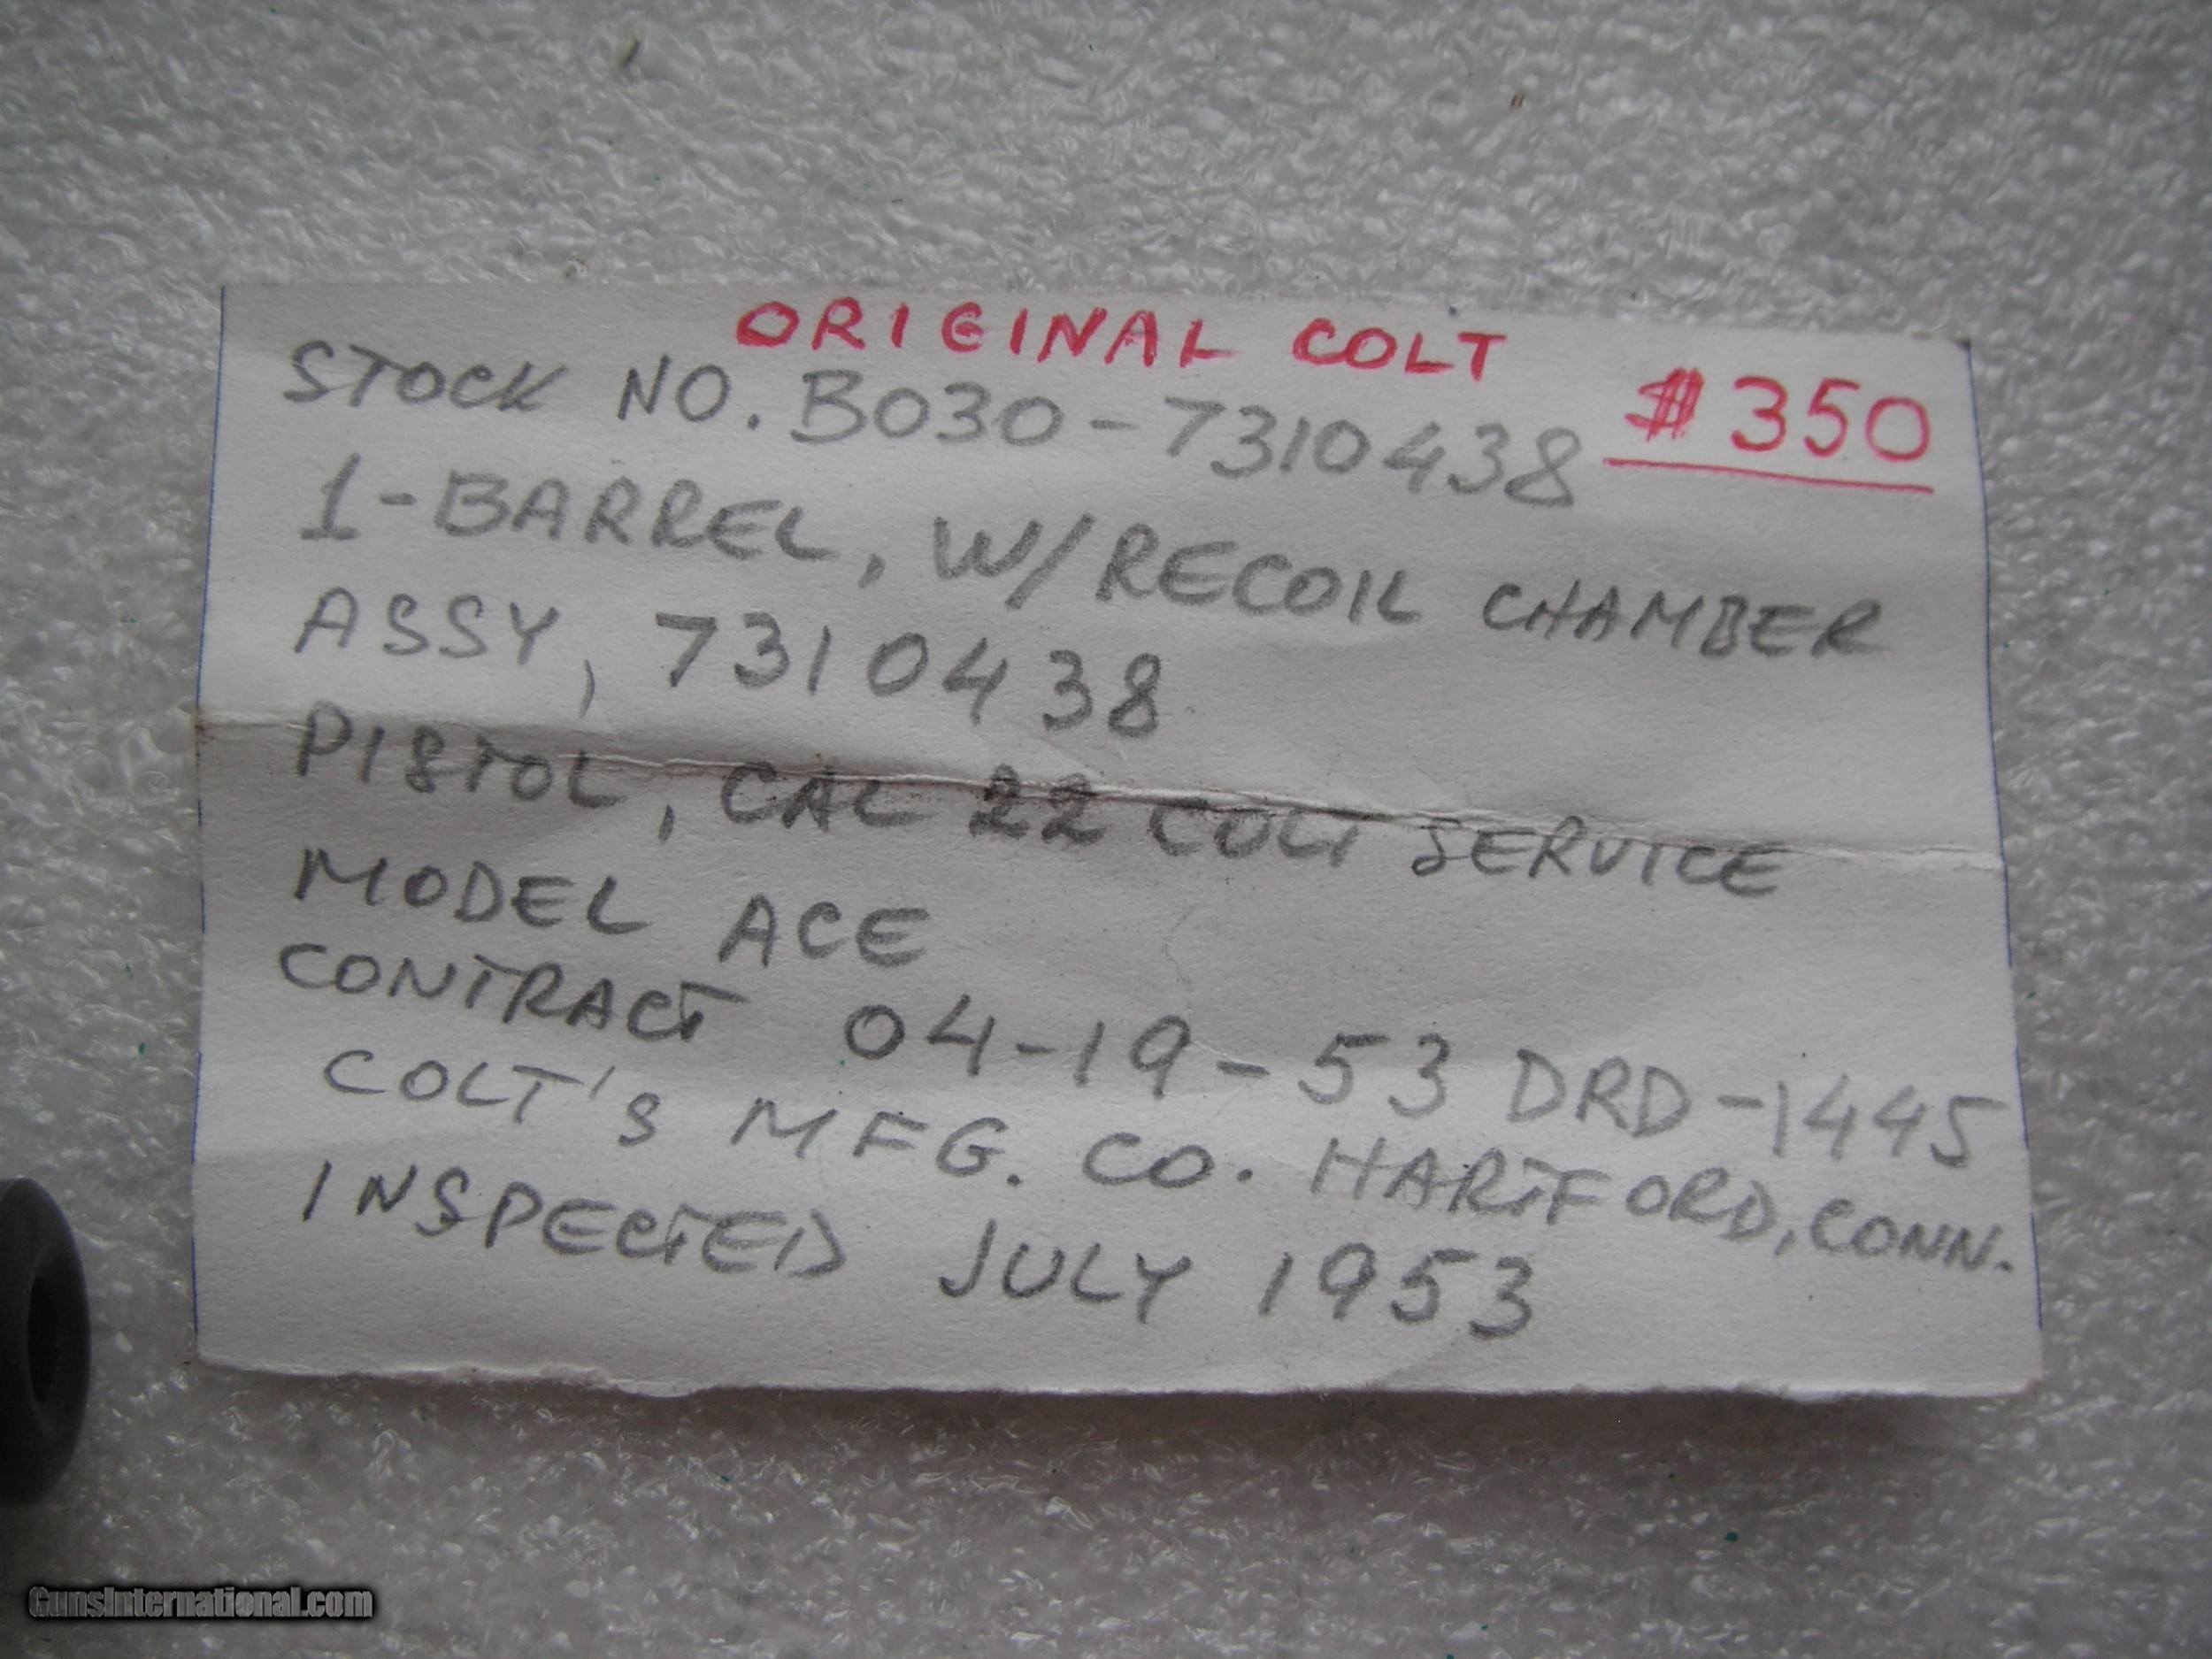 ORIGINAL COLT
$350
STOCK NO. B030-7310438
1-BARREL, W/RECOIL CHAMBER
ASSY, 7310438
PISTOL, CAL 22 COLT SERVICE
MODEL ACE
CONTRACT 04-19-53 DRD-1445
COLT'S MFG. CO. HARTFORD, CONN.
INSPECTED JULY 1953
GunsInternational.com